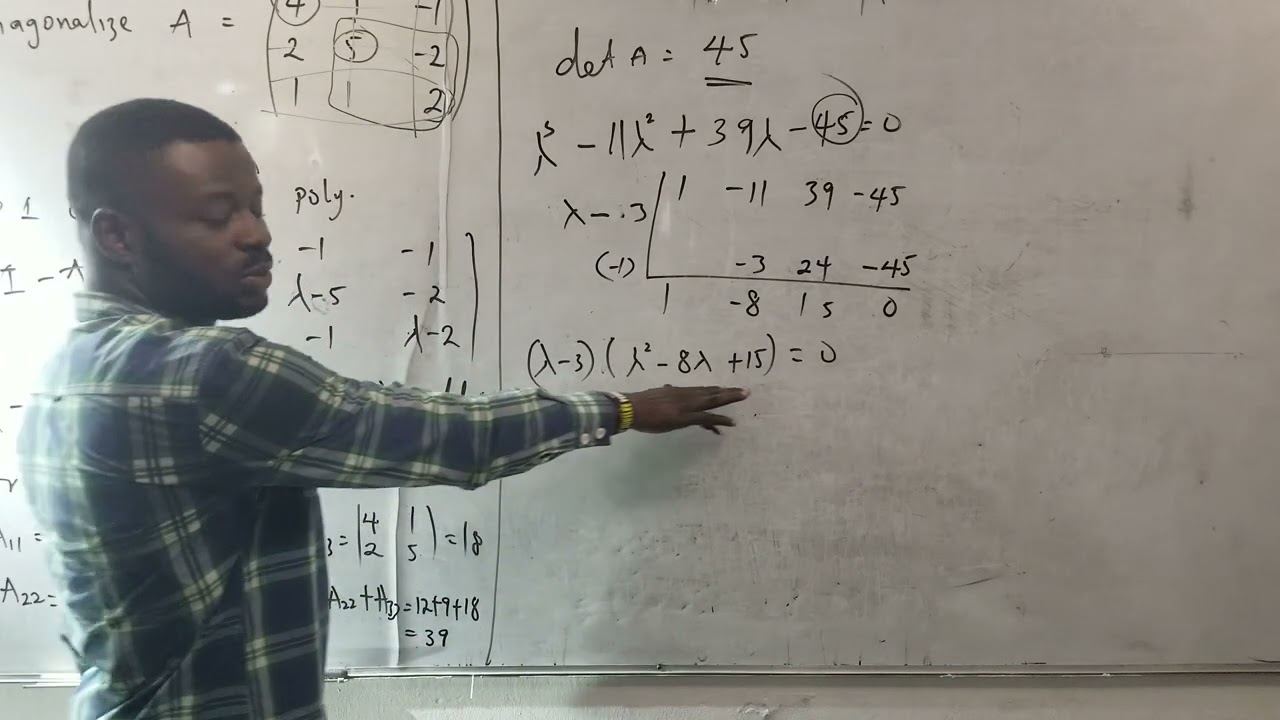 iagonalize A =
4 1 -1
2 5 -2
1 1 2
poly.
-1 -1
I - A
λ-5 -2
-1 λ-2
A₁₁ =
= |4 1
2 5| = 18
A₂₂ =
A₂₂ + A₃₃ = 12+9+18
= 39
det A = 45
λ³ - 11λ² + 39λ - 45 = 0
λ - 3 | 1 -11 39 -45
(-1) -3 24 -45
1 -8 15 0
(λ-3).(λ² - 8λ +15) = 0